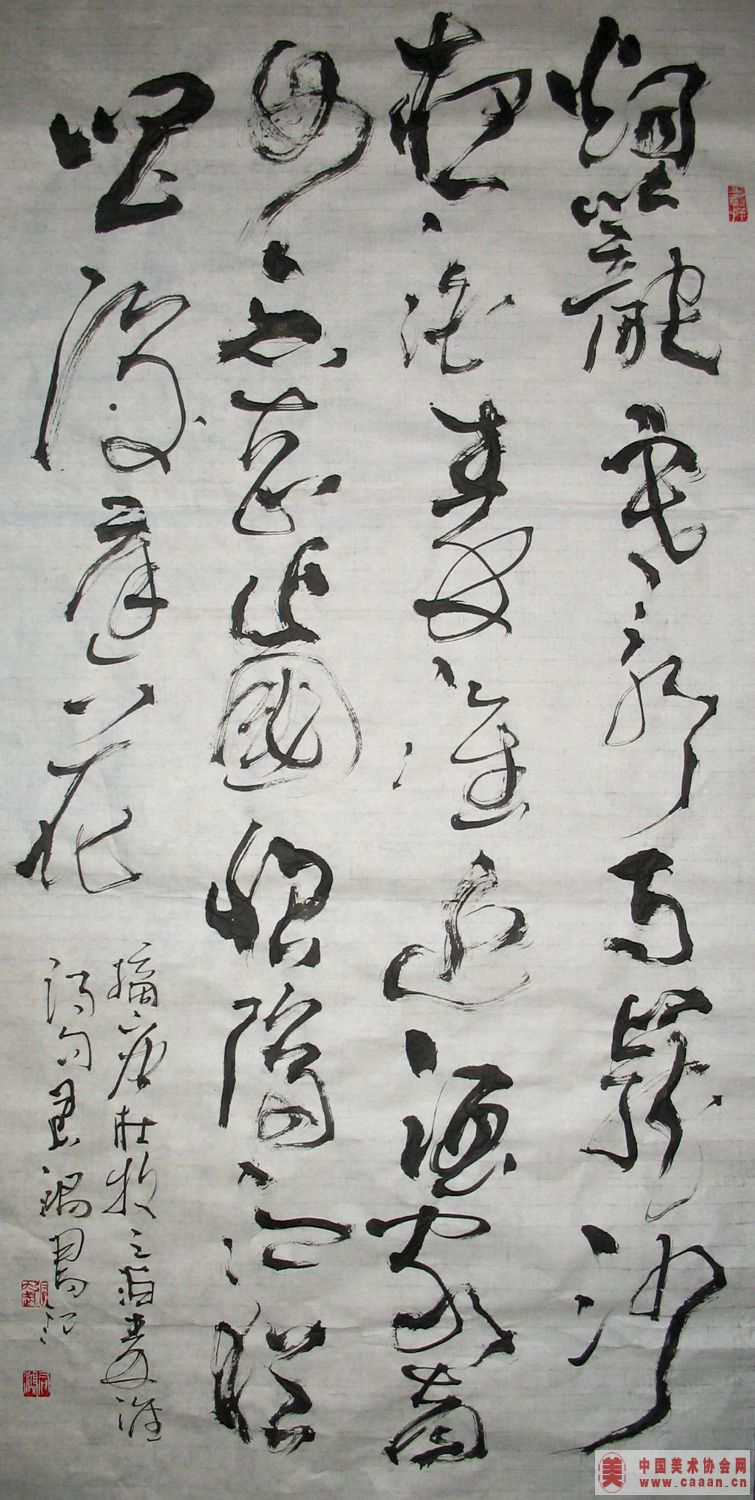 烟籠寒水月籠沙
夜泊秦淮近酒家商
女不知亡國恨隔江猶
唱後庭花
摘唐杜牧之泊秦淮
詩句
美
中国美术协会网
www.caaan.cn